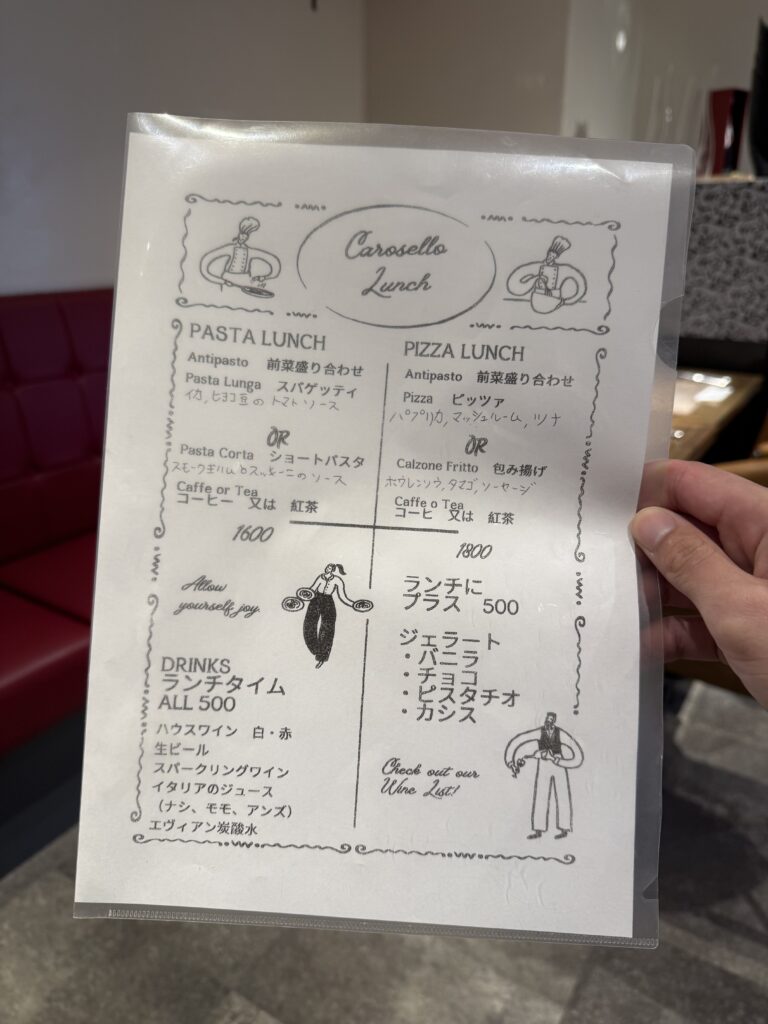 Carosello
Lunch
PASTA LUNCH
Antipasto 前菜盛り合わせ
Pasta Lunga スパゲッティ
イカ,ヒヨコ豆の トマトソース
OR
Pasta Corta ショートパスタ
スモークサーモンとズッキーニのソース
Caffe or Tea
コーヒー 又は 紅茶
1600
PIZZA LUNCH
Antipasto 前菜盛り合わせ
Pizza ピッツァ
パプリカ,マッシュルーム,ツナ
OR
Calzone Fritto 包み揚げ
ホウレンソウ,タマゴ,ソーセージ
Caffe o Tea
コーヒ 又は 紅茶
1800
Allow
yourself joy.
DRINKS
ランチタイム
ALL 500
ハウスワイン 白・赤
生ビール
スパークリングワイン
イタリアのジュース
(ナシ、モモ、アンズ)
エヴィアン炭酸水
ランチに
プラス 500
ジェラート
・バニラ
・チョコ
・ピスタチオ
・カシス
Check out our
Wine List!